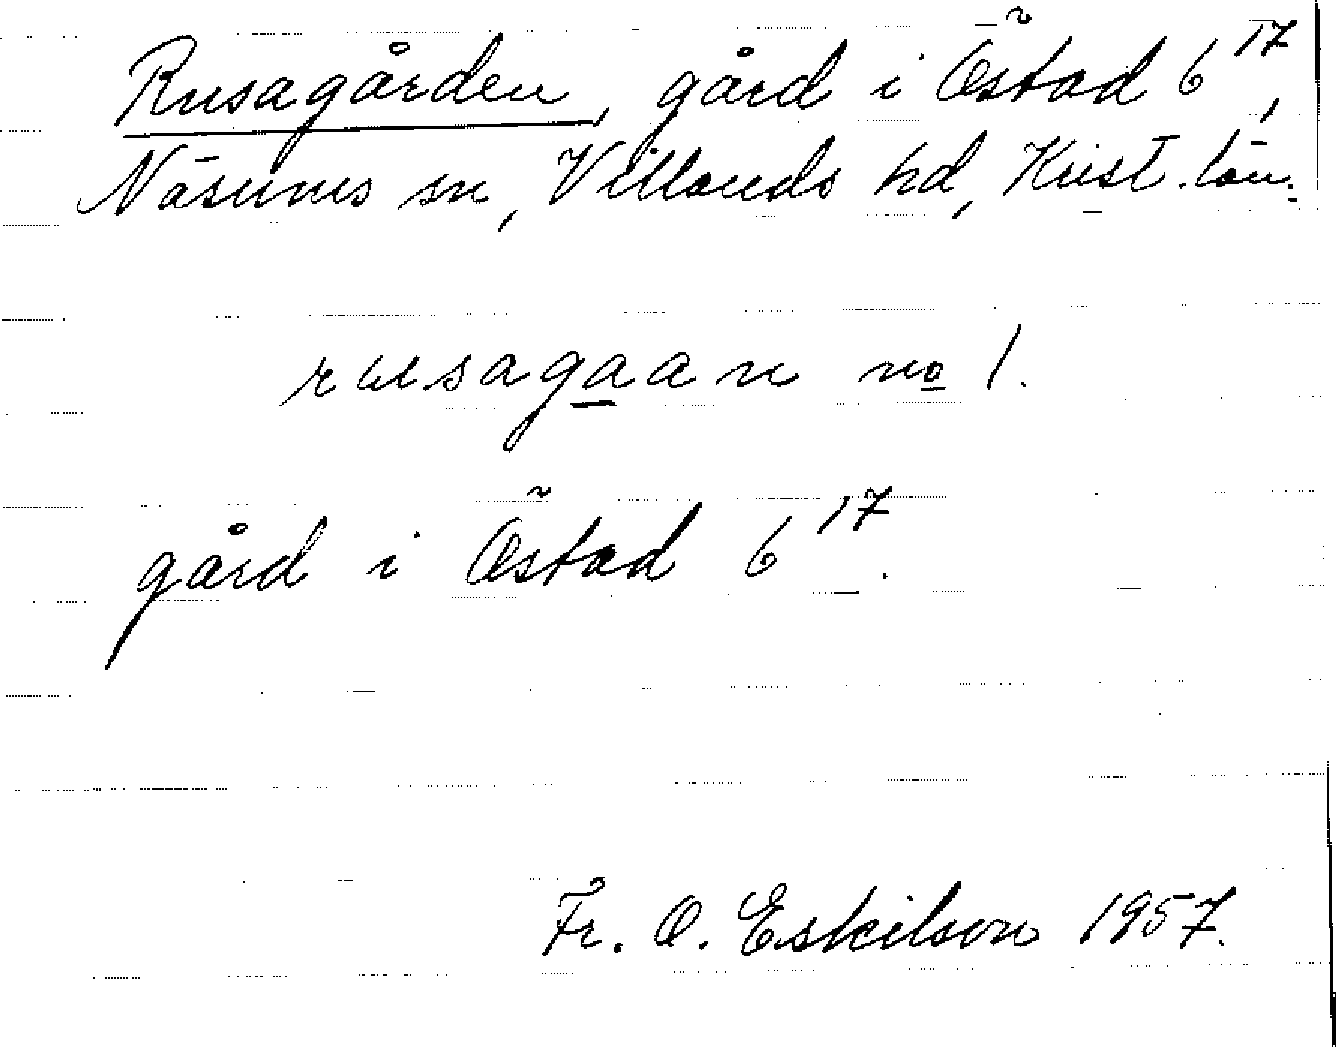 Rusagården, gård i Östad 6¹⁷,
Näsums sn, Villands hd, Krist. län.
rusagaan no 1.
gård i Östad 6¹⁷.
Fr. O. Eskilson 1957.